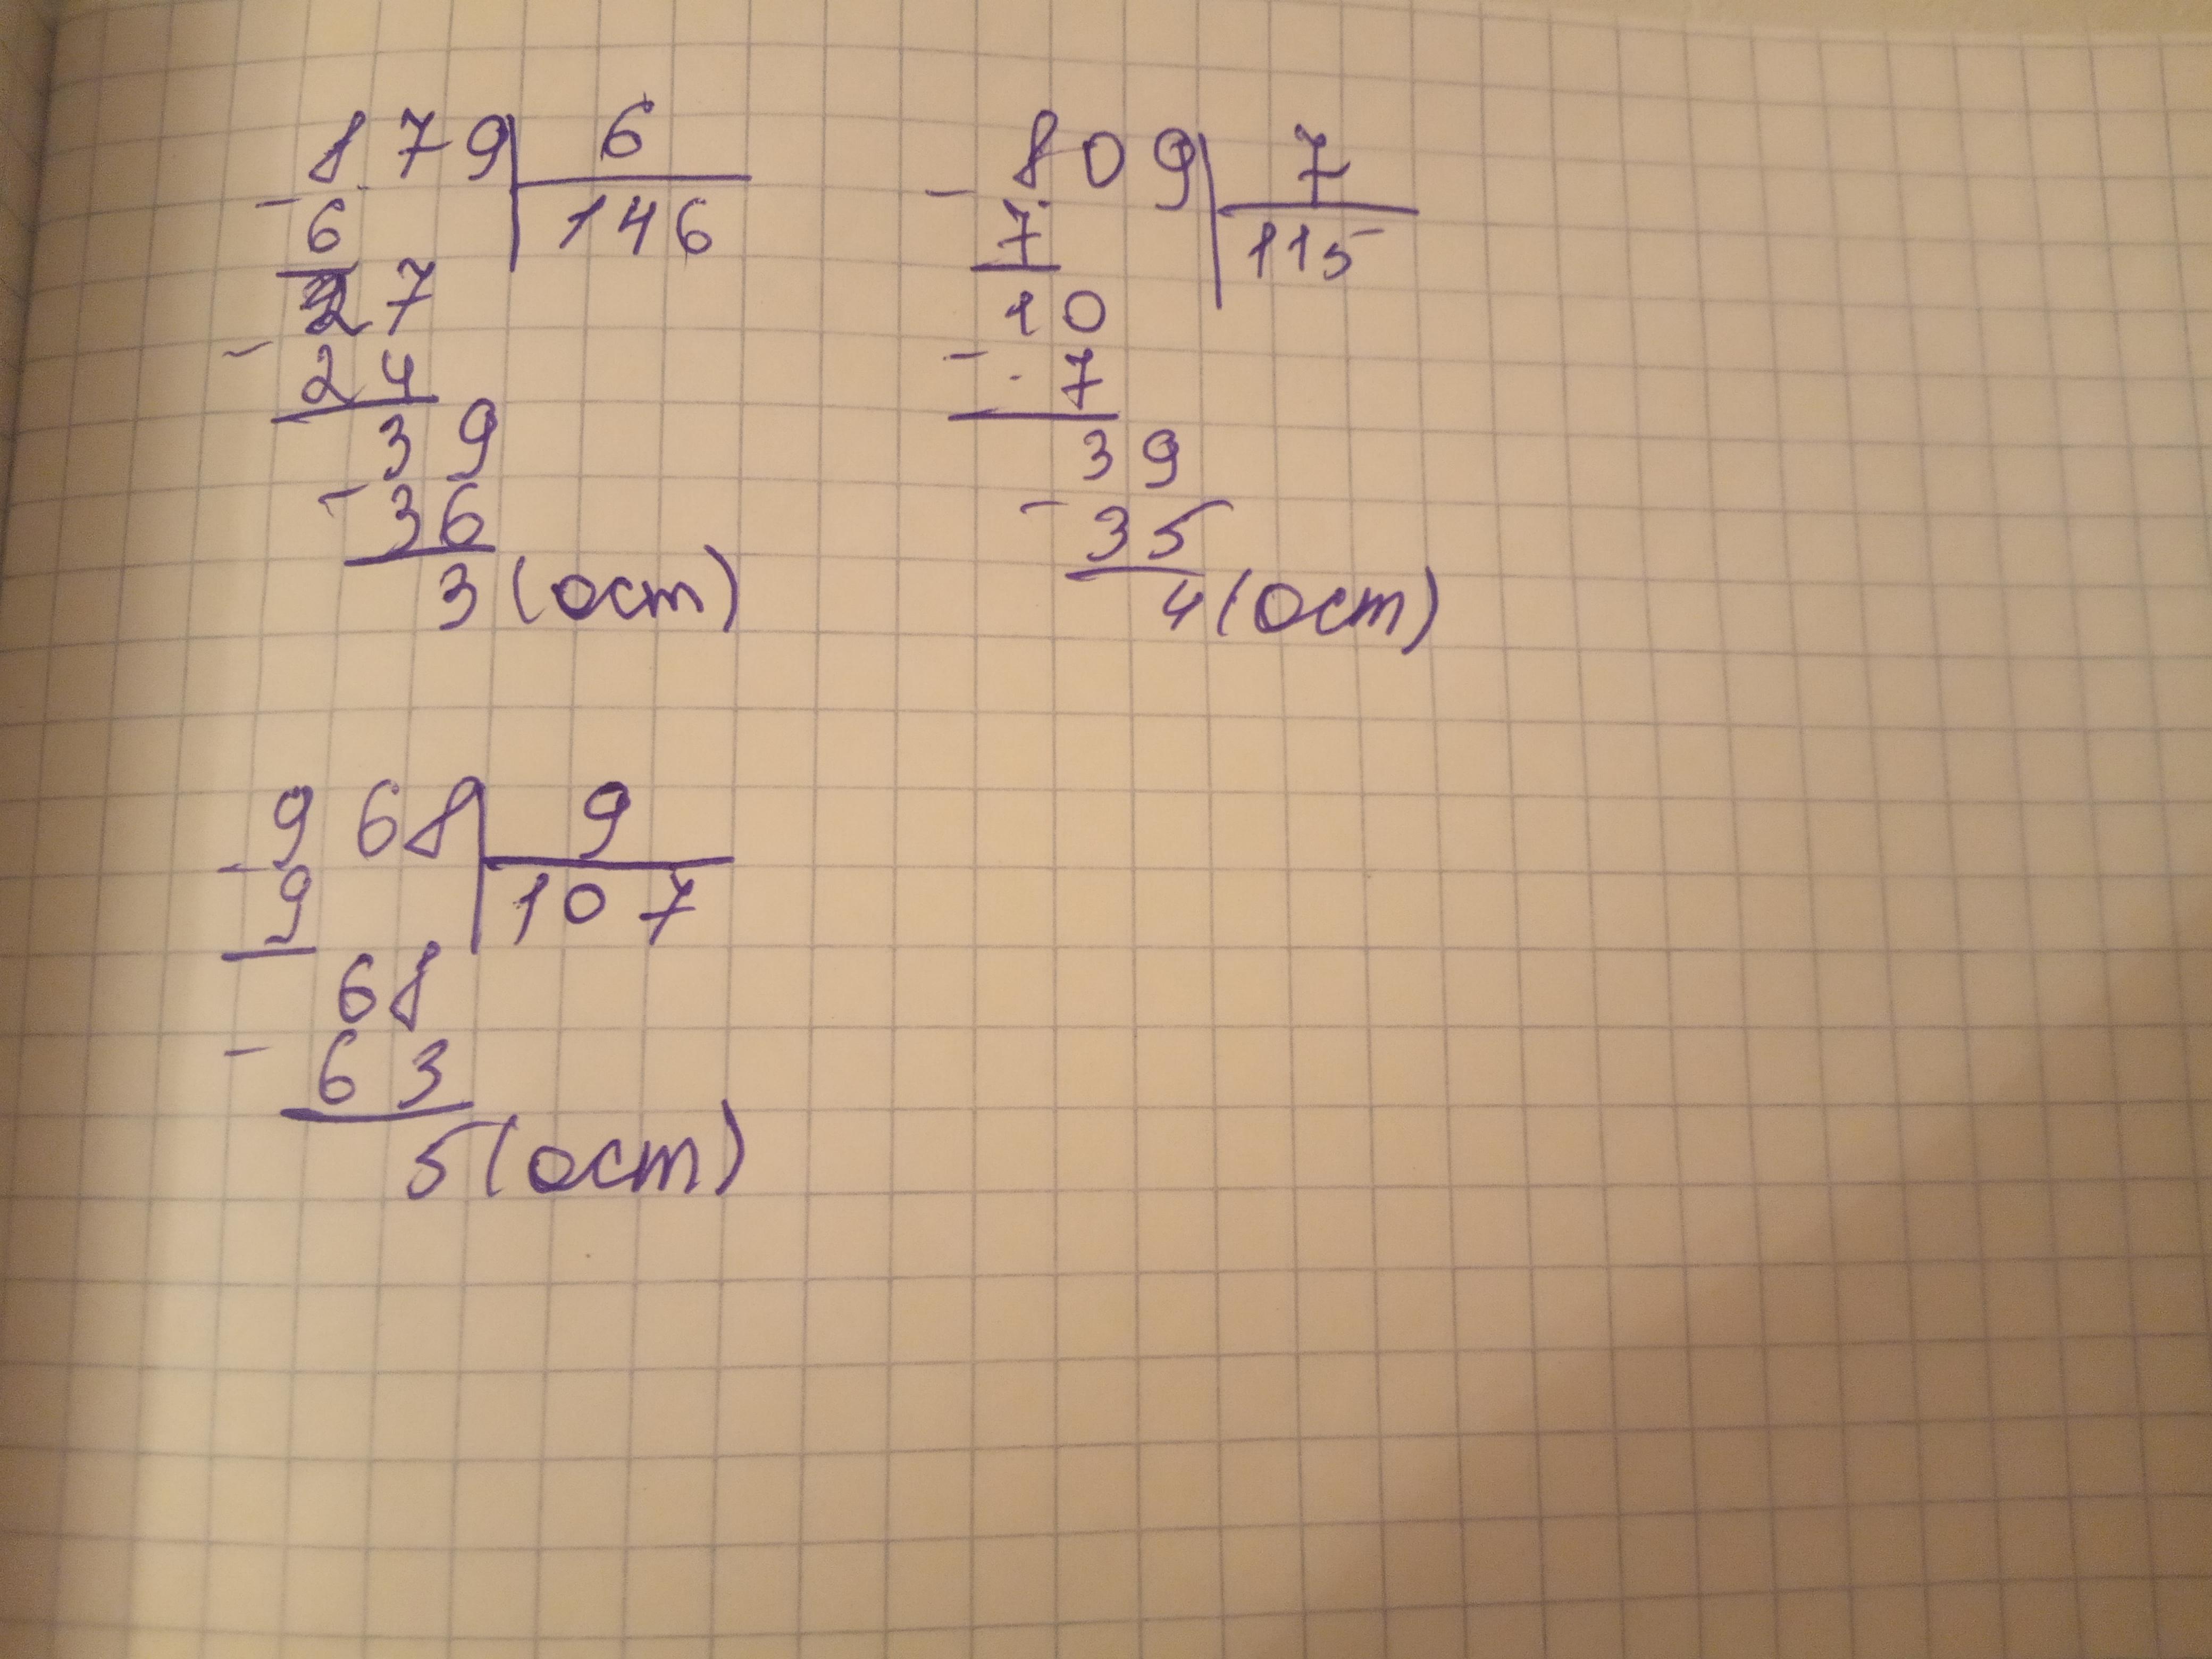 879 6
- 6 146
27
- 24
39
- 36
3 (ост)
809 7
- 7 115
10
- 7
39
- 35
4 (ост)
968 9
- 9 107
68
- 63
5 (ост)